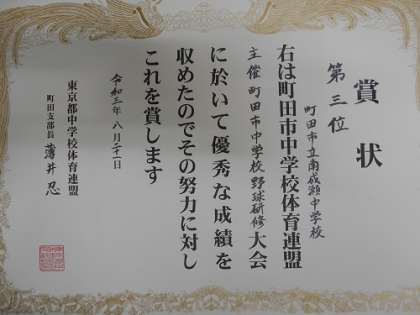 賞状
第三位
町田市立南成瀬中学校
右は町田市中学校体育連盟
主催町田市中学校野球研修大会
に於いて優秀な成績を
収めたのでその努力に対し
これを賞します
令和三年八月二十一日
東京都中学校体育連盟
町田支部長 薄井忍